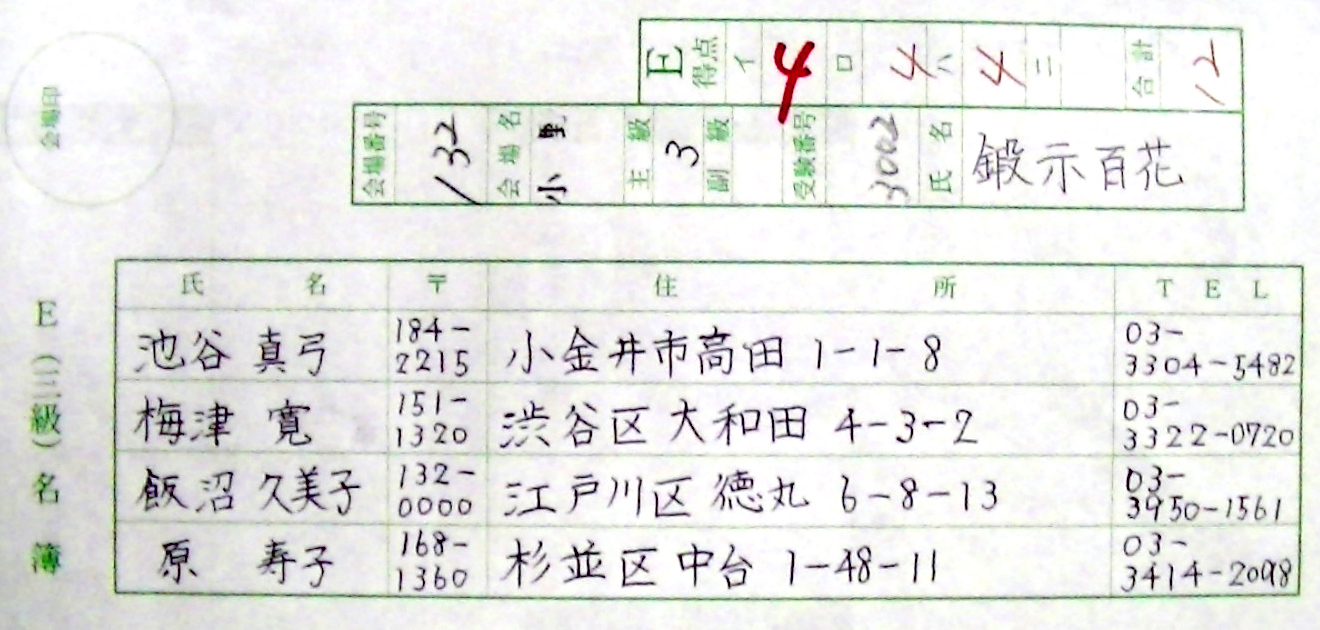 E 得点 イ 4 ロ 4 ハ 4 ニ 合計 12
会場印
会場番号 132 会場名 小野 主級 3 副級 受験番号 3002 氏名 鍛示百花
E(三級)名簿
氏名 〒 住所 TEL
池谷 真弓 184-2215 小金井市高田 1-1-8 03-3304-5482
梅津 寛 151-1320 渋谷区大和田 4-3-2 03-3322-0720
飯沼 久美子 132-0000 江戸川区徳丸 6-8-13 03-3950-1561
原 寿子 168-1360 杉並区中台 1-48-11 03-3414-2098